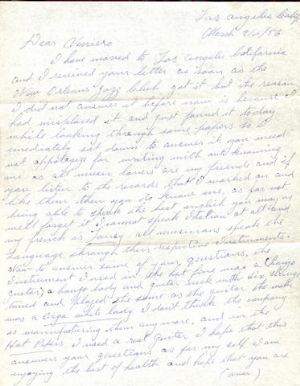 Los Angeles Calif
March 24/56
Dear
I have moved to Los Angeles California
and I received your letter as soon as the
New Orleans Jazz Club got it but the reason
I did not answer it before now is because I
had misplaced it and just found it today
while looking through some papers so I
imediately sat down to answer it you need
not appologize for writing with out knowing
me as all music lovers are my friend and if
you listen to the records that I worked on and
like them then you do know me, as for not
being able to speak the best english you may as
well forget it I cannot speak Italian at all and
my french is lousy all musicians speak the
language through their respective Instruments.
Now to answer some of your questions, the
Instrument I used in the hot five was a
guitar) a banjo body and guitar neck with six strings
tuned and played the same as the guitar the make
was a I don't think the company
is manufacturing them any more, and in the
Hot Pepers I used a real guitar, I hope that this
answers your questions as for my self I am
enjoying the best of health and hope that you are
(over)